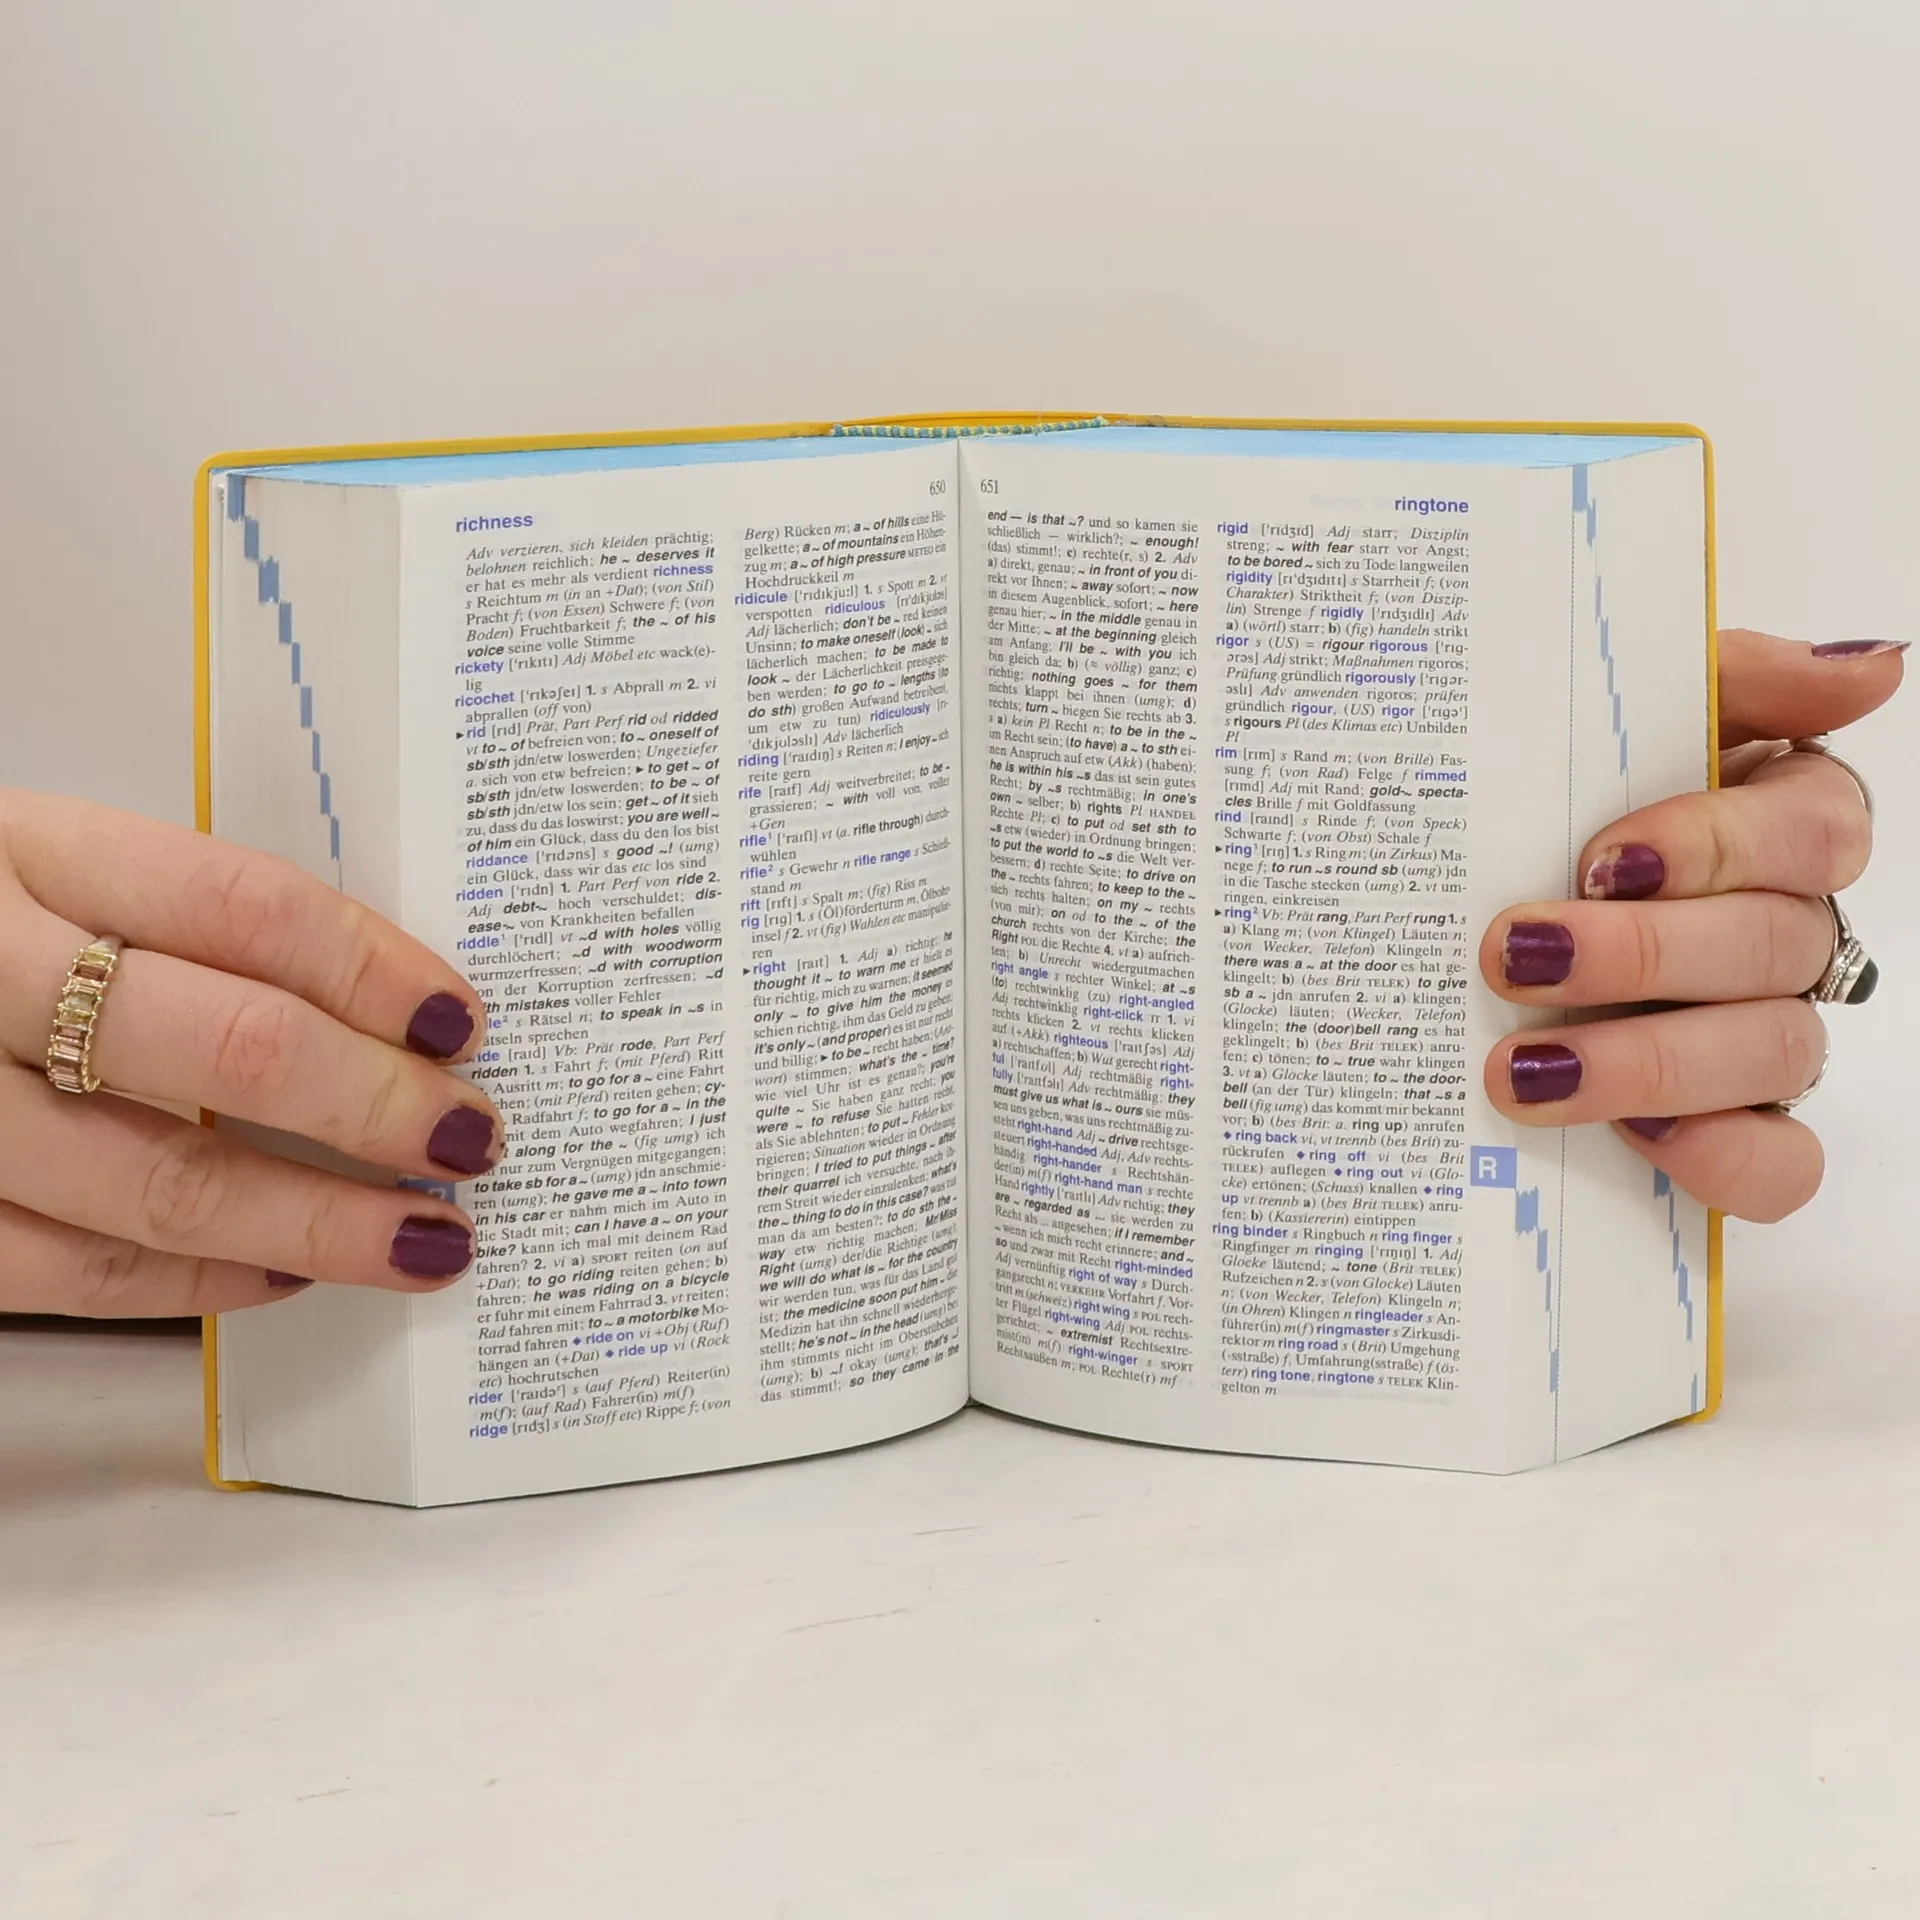 650
richness
Adv verzieren, sich kleiden prächtig;
belohnen reichlich; he ~ deserves it
er hat es mehr als verdient richness
s Reichtum m (in an +Dat); (von Stil)
Pracht f; (von Essen) Schwere f; (von
Boden) Fruchtbarkeit f; the ~ of his
voice seine volle Stimme
rickety ['rɪkɪtɪ] Adj Möbel etc wack(e)-
lig
ricochet ['rɪkəʃeɪ] 1. s Abprall m 2. vi
abprallen (off von)
▸rid [rɪd] Prät, Part Perf rid od ridded
vt to ~ of befreien von; to ~ oneself of
sb/sth jdn/etw loswerden; Ungeziefer
a. sich von etw befreien; ▸ to get ~ of
sb/sth jdn/etw loswerden; to be ~ of
sb/sth jdn/etw los sein; get ~ of it sieh
zu, dass du das loswirst; you are well ~
of him ein Glück, dass du den los bist
riddance ['rɪdəns] s good ~! (umg)
ein Glück, dass wir das etc los sind
ridden ['rɪdn] 1. Part Perf von ride 2.
Adj debt-~ hoch verschuldet; dis-
ease-~ von Krankheiten befallen
riddle¹ ['rɪdl] vt ~d with holes völlig
durchlöchert; ~d with woodworm
wurmzerfressen; ~d with corruption
von der Korruption zerfressen; ~d
with mistakes voller Fehler
le² s Rätsel n; to speak in ~s in
ätseln sprechen
ide [raɪd] Vb: Prät rode, Part Perf
ridden 1. s Fahrt f; (mit Pferd) Ritt
Ausritt m; to go for a ~ eine Fahrt
chen; (mit Pferd) reiten gehen; cy-
Radfahrt f; to go for a ~ in the
mit dem Auto wegfahren; I just
along for the ~ (fig umg) ich
nur zum Vergnügen mitgegangen;
to take sb for a ~ (umg) jdn anschmie-
ren (umg); he gave me a ~ into town
in his car er nahm mich im Auto in
die Stadt mit; can I have a ~ on your
bike? kann ich mal mit deinem Rad
fahren? 2. vi a) SPORT reiten (on auf
+Dat); to go riding reiten gehen; b)
fahren; he was riding on a bicycle
er fuhr mit einem Fahrrad 3. vt reiten;
Rad fahren mit; to ~ a motorbike Mo-
torrad fahren ◆ ride on vi +Obj (Ruf)
hängen an (+Dat) ◆ ride up vi (Rock
etc) hochrutschen
rider ['raɪdəʳ] s (auf Pferd) Reiter(in)
m(f); (auf Rad) Fahrer(in) m(f)
ridge [rɪdʒ] s (in Stoff etc) Rippe f; (von
Berg) Rücken m; a ~ of hills eine Hü-
gelkette; a ~ of mountains ein Höhen-
zug m; a ~ of high pressure METEO ein
Hochdruckkeil m
ridicule ['rɪdɪkjuːl] 1. s Spott m 2. vt
verspotten ridiculous [rɪ'dɪkjʊləs]
Adj lächerlich; don't be ~ red keinen
Unsinn; to make oneself (look) ~ sich
lächerlich machen; to be made to
look ~ der Lächerlichkeit preisgege-
ben werden; to go to ~ lengths (to
do sth) großen Aufwand betreiben(,
um etw zu tun) ridiculously [rɪ-
'dɪkjʊləslɪ] Adv lächerlich
riding ['raɪdɪŋ] s Reiten n; I enjoy ~ ich
reite gern
rife [raɪf] Adj weitverbreitet; to be ~
grassieren; ~ with voll von, voller
+Gen
rifle¹ ['raɪfl] vt (a. rifle through) durch-
wühlen
rifle² s Gewehr n rifle range s Schieß-
stand m
rift [rɪft] s Spalt m; (fig) Riss m
rig [rɪg] 1. s (Öl)förderturm m, Ölbohr-
insel f 2. vt (fig) Wahlen etc manipulie-
ren
▸right [raɪt] 1. Adj a) richtig; he
thought it ~ to warn me er hielt es
für richtig, mich zu warnen; it seemed
only ~ to give him the money es
schien richtig, ihm das Geld zu geben;
it's only ~ (and proper) es ist nur recht
und billig; ▸ to be ~ recht haben; (Ant-
wort) stimmen; what's the ~ time?
wie viel Uhr ist es genau?; you're
quite ~ Sie haben ganz recht; you
were ~ to refuse Sie hatten recht,
als Sie ablehnten; to put ~ Fehler kor-
rigieren; Situation wieder in Ordnung
bringen; I tried to put things ~ after
their quarrel ich versuchte, nach ih-
rem Streit wieder einzulenken; what's
the ~ thing to do in this case? was tut
man da am besten?; to do sth the ~
way etw richtig machen; Mr/Miss
Right (umg) der/die Richtige (umg);
we will do what is ~ for the country
wir werden tun, was für das Land gut
ist; the medicine soon put him ~ die
Medizin hat ihn schnell wiederherge-
stellt; he's not ~ in the head (umg) bei
ihm stimmts nicht im Oberstübchen
(umg); b) ~! okay (umg); that's ~!
das stimmt!; so they came in the
651
ringtone
end — is that ~? und so kamen sie
schließlich — wirklich?; ~ enough!
(das) stimmt!; c) rechte(r, s) 2. Adv
a) direkt, genau; ~ in front of you di-
rekt vor Ihnen; ~ away sofort; ~ now
in diesem Augenblick, sofort; ~ here
genau hier; ~ in the middle genau in
der Mitte; ~ at the beginning gleich
am Anfang; I'll be ~ with you ich
bin gleich da; b) (≈ völlig) ganz; c)
richtig; nothing goes ~ for them
nichts klappt bei ihnen (umg); d)
rechts; turn ~ biegen Sie rechts ab 3.
s a) kein Pl Recht n; to be in the ~
im Recht sein; (to have) a ~ to sth ei-
nen Anspruch auf etw (Akk) (haben);
he is within his ~s das ist sein gutes
Recht; by ~s rechtmäßig; in one's
own ~ selber; b) rights Pl HANDEL
Rechte Pl; c) to put od set sth to
~s etw (wieder) in Ordnung bringen;
to put the world to ~s die Welt ver-
bessern; d) rechte Seite; to drive on
the ~ rechts fahren; to keep to the ~
sich rechts halten; on my ~ rechts
(von mir); on od to the ~ of the
church rechts von der Kirche; the
Right POL die Rechte 4. vt a) aufrich-
ten; b) Unrecht wiedergutmachen
right angle s rechter Winkel; at ~s
(to) rechtwinklig (zu) right-angled
Adj rechtwinklig right-click IT 1. vi
rechts klicken 2. vt rechts klicken
auf (+Akk) righteous ['raɪtʃəs] Adj
a) rechtschaffen; b) Wut gerecht right-
ful ['raɪtfʊl] Adj rechtmäßig right-
fully ['raɪtfəlɪ] Adv rechtmäßig; they
must give us what is ~ ours sie müs-
sen uns geben, was uns rechtmäßig zu-
steht right-hand Adj ~ drive rechtsge-
steuert right-handed Adj, Adv rechts-
händig right-hander s Rechtshän-
der(in) m(f) right-hand man s rechte
Hand rightly ['raɪtlɪ] Adv richtig; they
are ~ regarded as ... sie werden zu
Recht als ... angesehen; if I remember
~ wenn ich mich recht erinnere; and ~
so und zwar mit Recht right-minded
Adj vernünftig right of way s Durch-
gangsrecht n; VERKEHR Vorfahrt f, Vor-
tritt m (schweiz) right wing s POL rech-
ter Flügel right-wing Adj POL rechts-
gerichtet; ~ extremist Rechtsextre-
mist(in) m(f) right-winger s SPORT
Rechtsaußen m; POL Rechte(r) mf
rigid ['rɪdʒɪd] Adj starr; Disziplin
streng; ~ with fear starr vor Angst;
to be bored ~ sich zu Tode langweilen
rigidity [rɪ'dʒɪdɪtɪ] s Starrheit f; (von
Charakter) Striktheit f; (von Diszip-
lin) Strenge f rigidly ['rɪdʒɪdlɪ] Adv
a) (wörtl) starr; b) (fig) handeln strikt
rigor s (US) = rigour rigorous ['rɪg-
ərəs] Adj strikt; Maßnahmen rigoros;
Prüfung gründlich rigorously ['rɪgər-
əslɪ] Adv anwenden rigoros; prüfen
gründlich rigour, (US) rigor ['rɪgəʳ]
s rigours Pl (des Klimas etc) Unbilden
Pl
rim [rɪm] s Rand m; (von Brille) Fas-
sung f; (von Rad) Felge f rimmed
[rɪmd] Adj mit Rand; gold-~ specta-
cles Brille f mit Goldfassung
rind [raɪnd] s Rinde f; (von Speck)
Schwarte f; (von Obst) Schale f
▸ring¹ [rɪŋ] 1. s Ring m; (in Zirkus) Ma-
nege f; to run ~s round sb (umg) jdn
in die Tasche stecken (umg) 2. vt um-
ringen, einkreisen
▸ring² Vb: Prät rang, Part Perf rung 1. s
a) Klang m; (von Klingel) Läuten n;
(von Wecker, Telefon) Klingeln n;
there was a ~ at the door es hat ge-
klingelt; b) (bes Brit TELEK) to give
sb a ~ jdn anrufen 2. vi a) klingen;
(Glocke) läuten; (Wecker, Telefon)
klingeln; the (door)bell rang es hat
geklingelt; b) (bes Brit TELEK) anru-
fen; c) tönen; to ~ true wahr klingen
3. vt a) Glocke läuten; to ~ the door-
bell (an der Tür) klingeln; that ~s a
bell (fig umg) das kommt mir bekannt
vor; b) (bes Brit: a. ring up) anrufen
◆ ring back vi, vt trennb (bes Brit) zu-
rückrufen ◆ ring off vi (bes Brit
TELEK) auflegen ◆ ring out vi (Glo-
cke) ertönen; (Schuss) knallen ◆ ring
up vt trennb a) (bes Brit TELEK) anru-
fen; b) (Kassiererin) eintippen
ring binder s Ringbuch n ring finger s
Ringfinger m ringing ['rɪŋɪŋ] 1. Adj
Glocke läutend; ~ tone (Brit TELEK)
Rufzeichen n 2. s (von Glocke) Läuten
n; (von Wecker, Telefon) Klingeln n;
(in Ohren) Klingen n ringleader s An-
führer(in) m(f) ringmaster s Zirkusdi-
rektor m ring road s (Brit) Umgehung
(-sstraße) f, Umfahrung(sstraße) f (ös-
terr) ring tone, ringtone s TELEK Klin-
gelton m
R